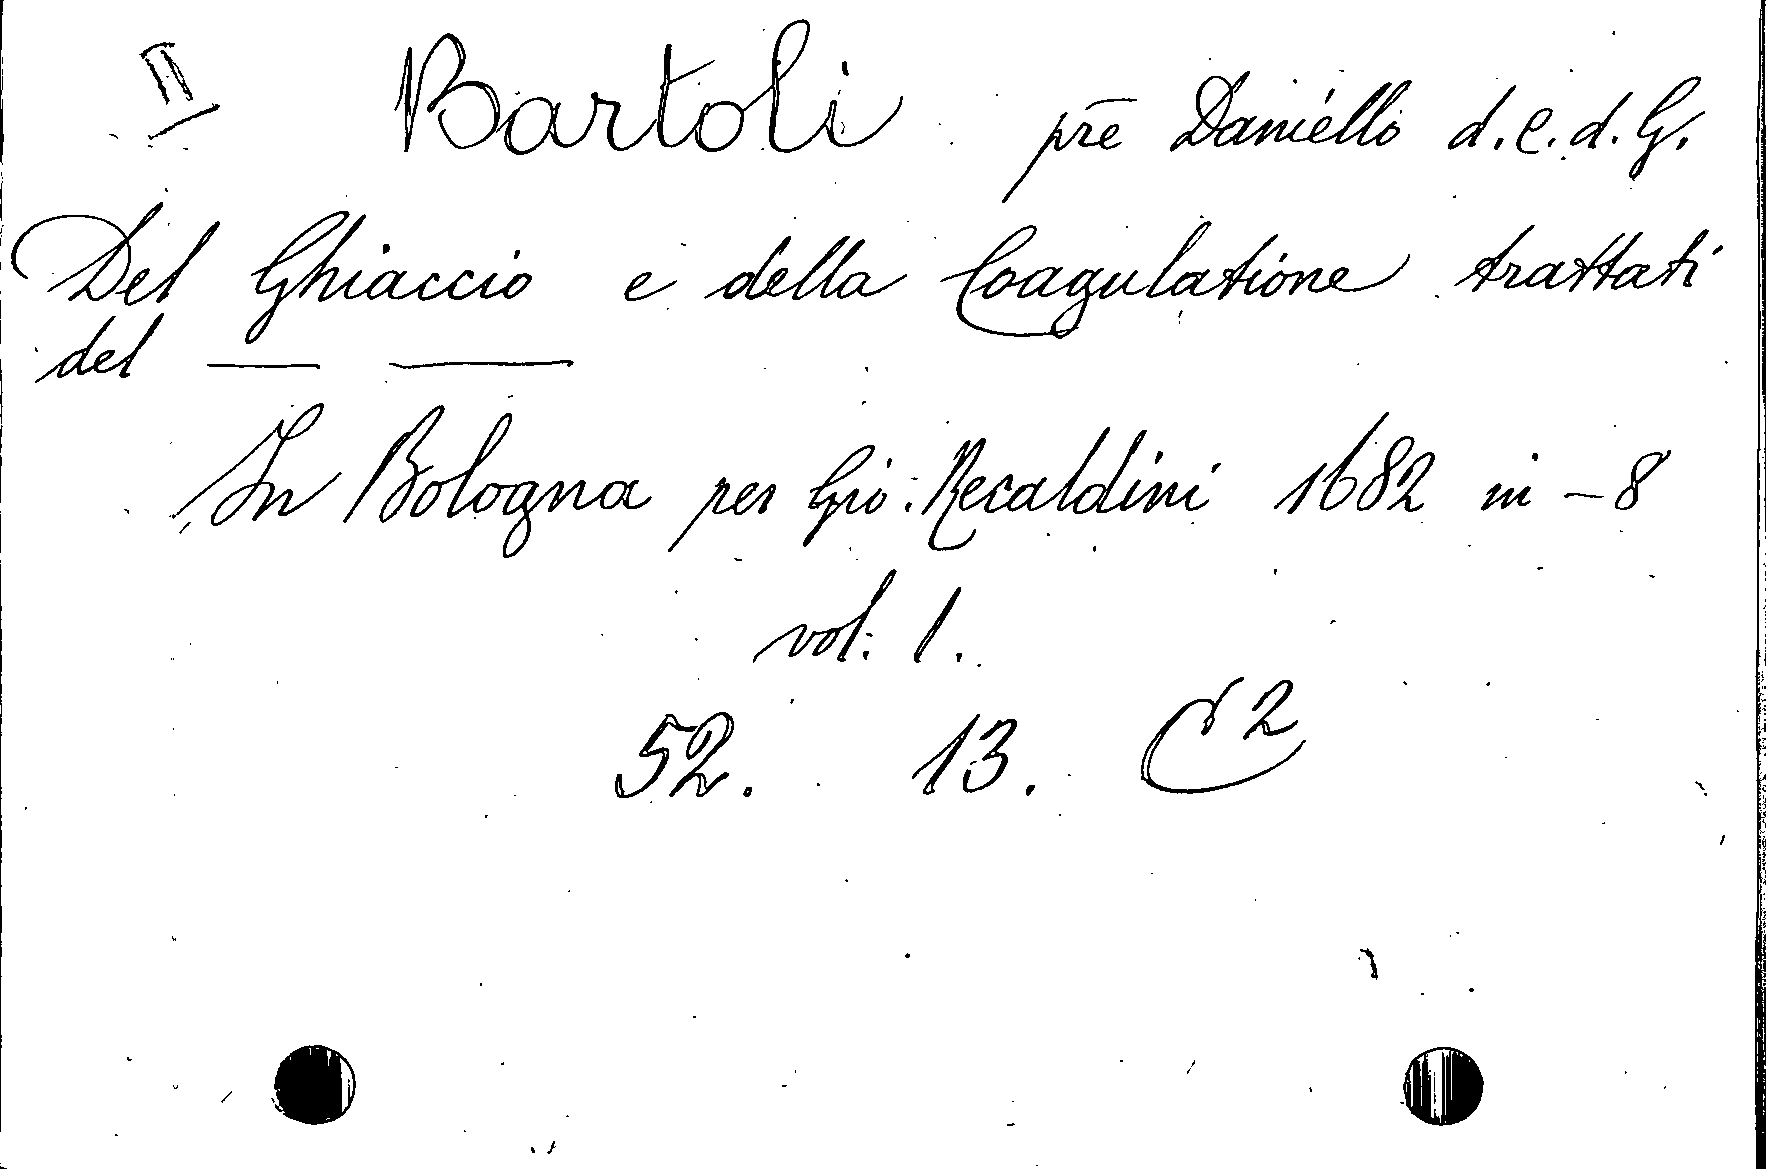 II Bartoli prē Daniello d. C. d. G.
Del Ghiaccio e della Coagulatione trattati
del — —
In Bologna per Gio: Recaldini 1682 in -8
vol: 1.
52. 13. C 2